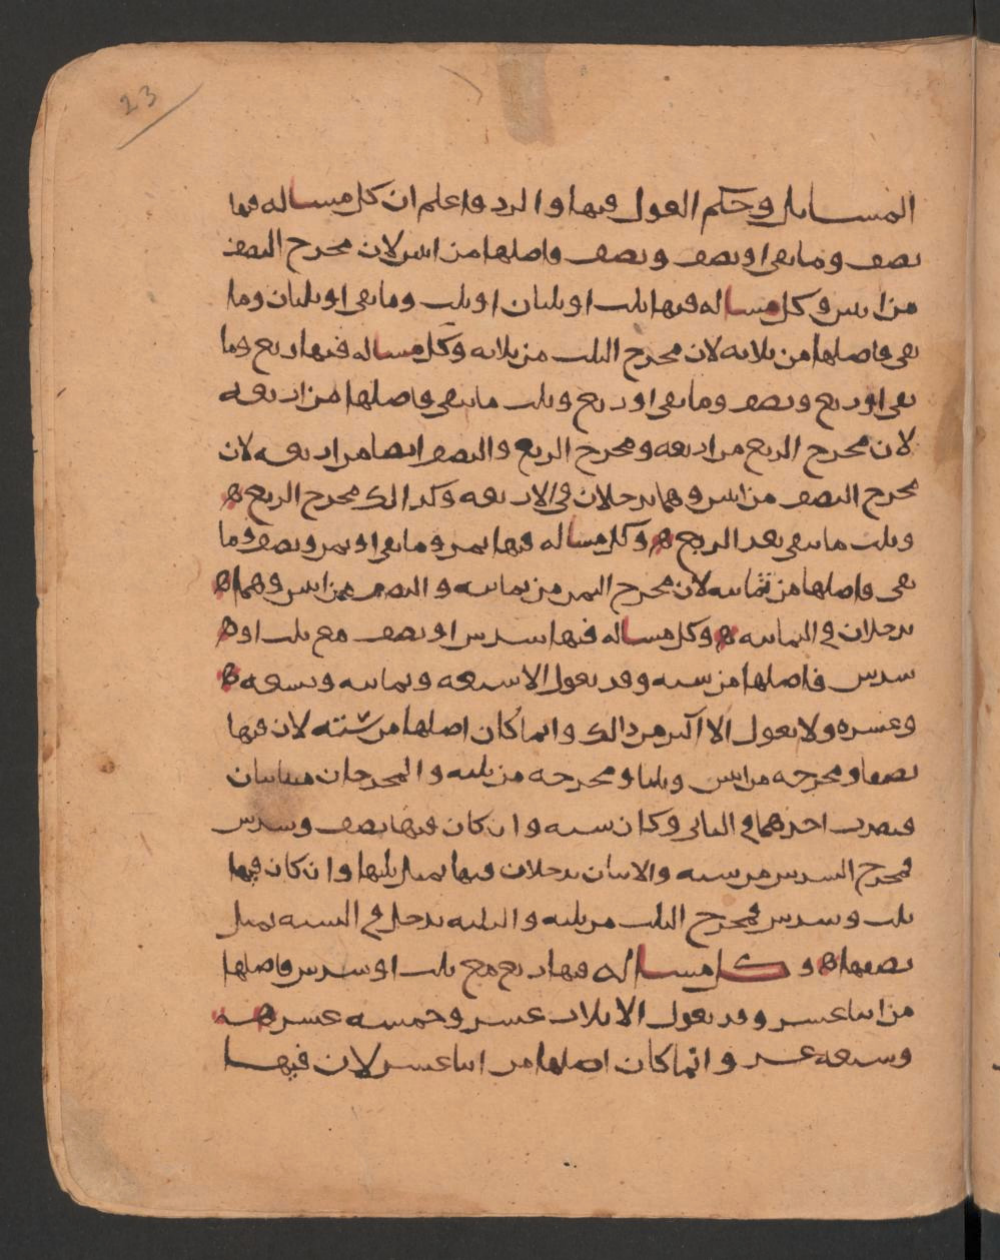 23
المسايل وحكم العول فيها والرد فاعلم ان كل مساله فيها
نصف وما بقي او نصف ونصف فاصلها من اثنين لان مخرج النصف
من اثنين وكل مساله فيها ثلث او ثلثان او ثلث وما بقي او ثلثان وما
بقي فاصلها من ثلاثه لان مخرج الثلث من ثلاثه وكل مساله فيها ربع وما
بقي او ربع ونصف وما بقي او ربع وثلث ما يبقي فاصلها من اربعه
لان مخرج الربع من اربعه ومخرج الربع والنصف ايضا من اربعه لان
مخرج النصف من اثنين وهما يدخلان في الاربعه وكذالك مخرج الربع ه
وثلث ما يبقي بعد الربع ه وكل مساله فيها ثمن وما بقي او ثمن ونصف وما
بقي فاصلها من ثمانيه لان مخرج الثمن من ثمانيه والنصف من اثنين وهما ه
يدخلان في الثمانيه ه وكل مساله فيها سدس او نصف مع ثلث او ه
سدس فاصلها من سته وقد تعول الا سبعه وثمانيه وتسعه ه
وعشره ولا تعول الا اكثر من ذالك وانما كان اصلها من سته لان فيها
نصفا ومخرجه من اثنين وثلثا ومخرجه من ثلثه والمخرجان متباينان
فيضرب احدهما في الثاني وكان سته وان كان فيها نصف وسدس
فمخرج السدس من سته والاثنان يدخلان فيها بمثل ثلثها وان كان فيها
ثلث وسدس فمخرج الثلث من ثلثه والثلثه تدخل في السته بمثل
نصفها ه وكل مساله فيها ربع مع ثلث او سدس فاصلها
من اثنا عشر وقد تعول الا ثلاث عشر وخمسه عشر ه
وسبعه عشر وانما كان اصلها من اثنا عشر لان فيها